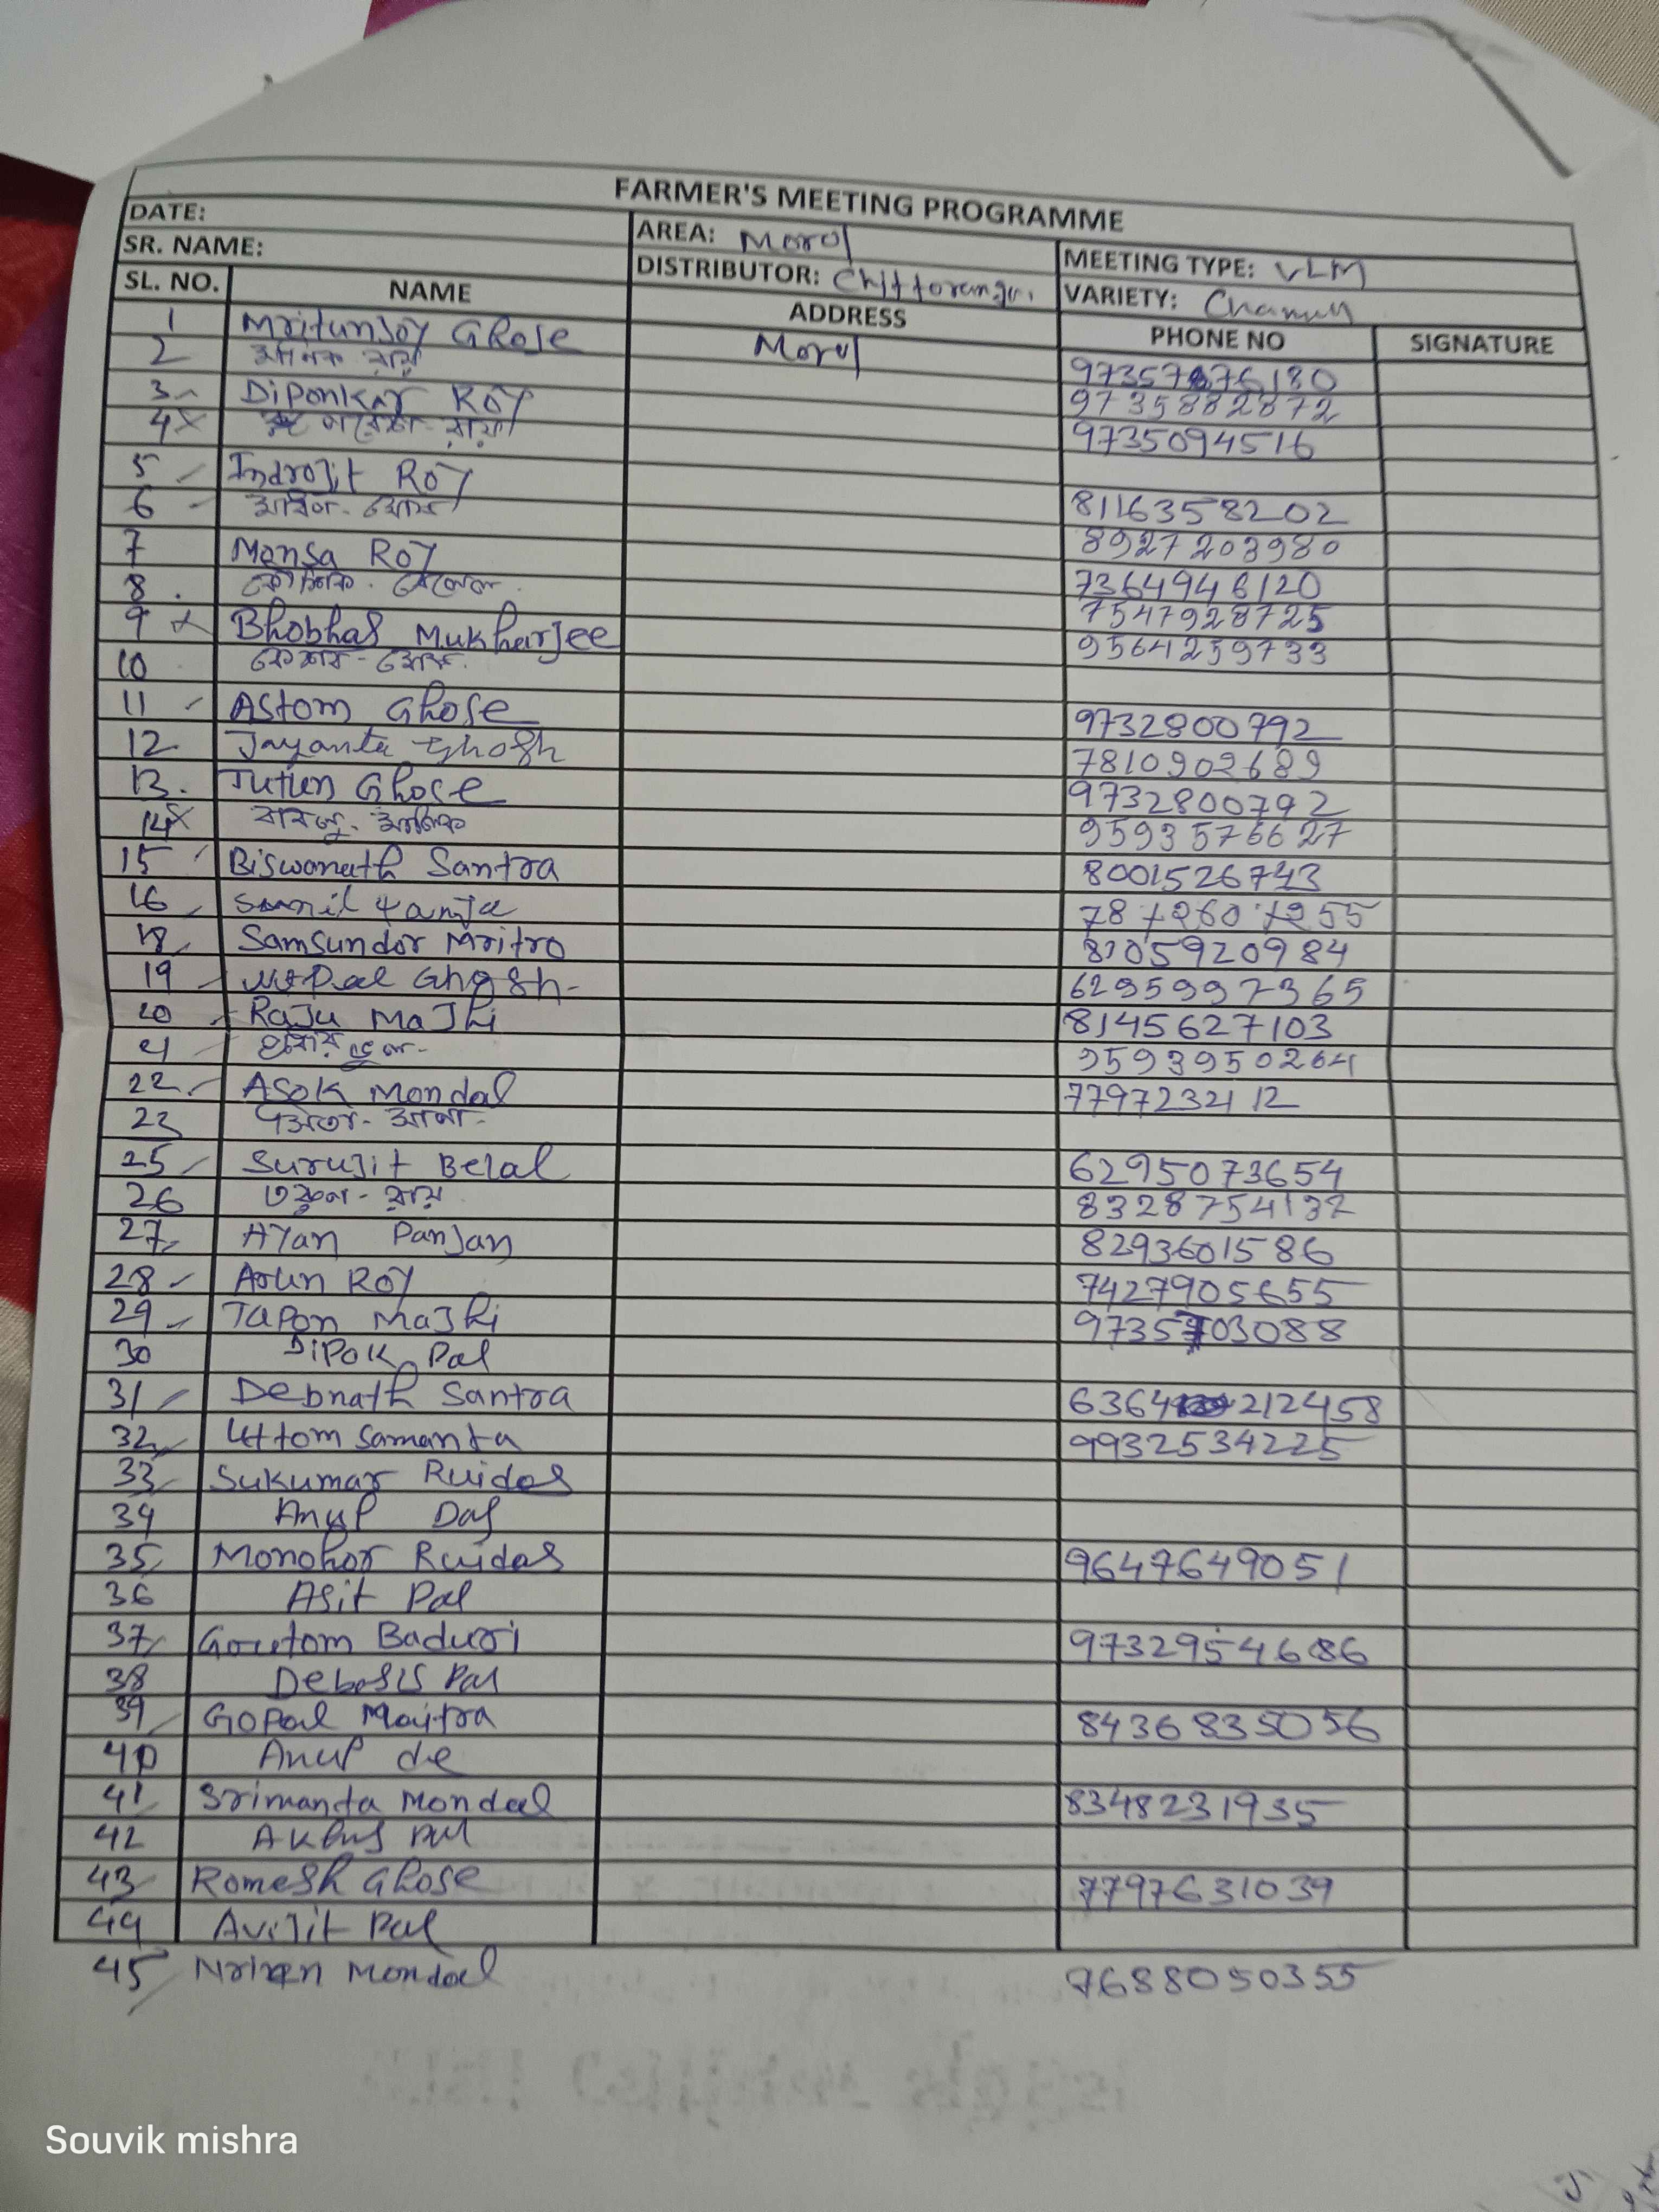 FARMER'S MEETING PROGRAMME
DATE: AREA: Morol MEETING TYPE: VLM
SR. NAME: DISTRIBUTOR: VARIETY:
SL. NO. NAME ADDRESS PHONE NO SIGNATURE
1 Mritunjoy Ghose Morol 9735767180
2 রায় 9735882872
3 Diponkar Roy 9735094516
4 x রায়
5 Indrojit Roy 8116358202
6 ঘোষ 8927203980
7 Monsa Roy 7364946120
8 কৌশিক 7547928725
9 x Bhobhas Mukharjee 9564259733
10 কেশব - ঘোষ
11 Astom Ghose 9732800792
12 Jayanta Ghosh 7810902689
13 Tutun Ghose 9732800792
14 x বাবলু মালিক 9593576627
15 Biswanath Santra 8001526743
16 7872607255
18 Samsundor Mritro 8105920984
19 Nepal Ghosh 6295997365
20 Raju Majhi 8145627103
21 9593950264
22 Asok Mondal 7797232112
23
25 Surujit Belal 6295073654
26 তরুণ - রায় 8328754132
27 Ayan Panjan 8293601586
28 Arun Roy 7427905655
29 Tapon Majhi 9735703088
30 Dipok Pal
31 Debnath Santra 6364212458
32 Uttom Samanta 9932534225
33 Sukumar Ruidas
34 Anup Das
35 Monohor Ruidas 9647649051
36 Asit Pal
37 Goutom Baduri 9732954686
38 Debasis Pal
39 Gopal Moitra 8436835056
40 Anup de
41 Srimanta Mondal 8348231935
42 Pal
43 Romesh Ghose 7797631039
44 Avijit Pal
45 Mondal 7688050355
Souvik mishra